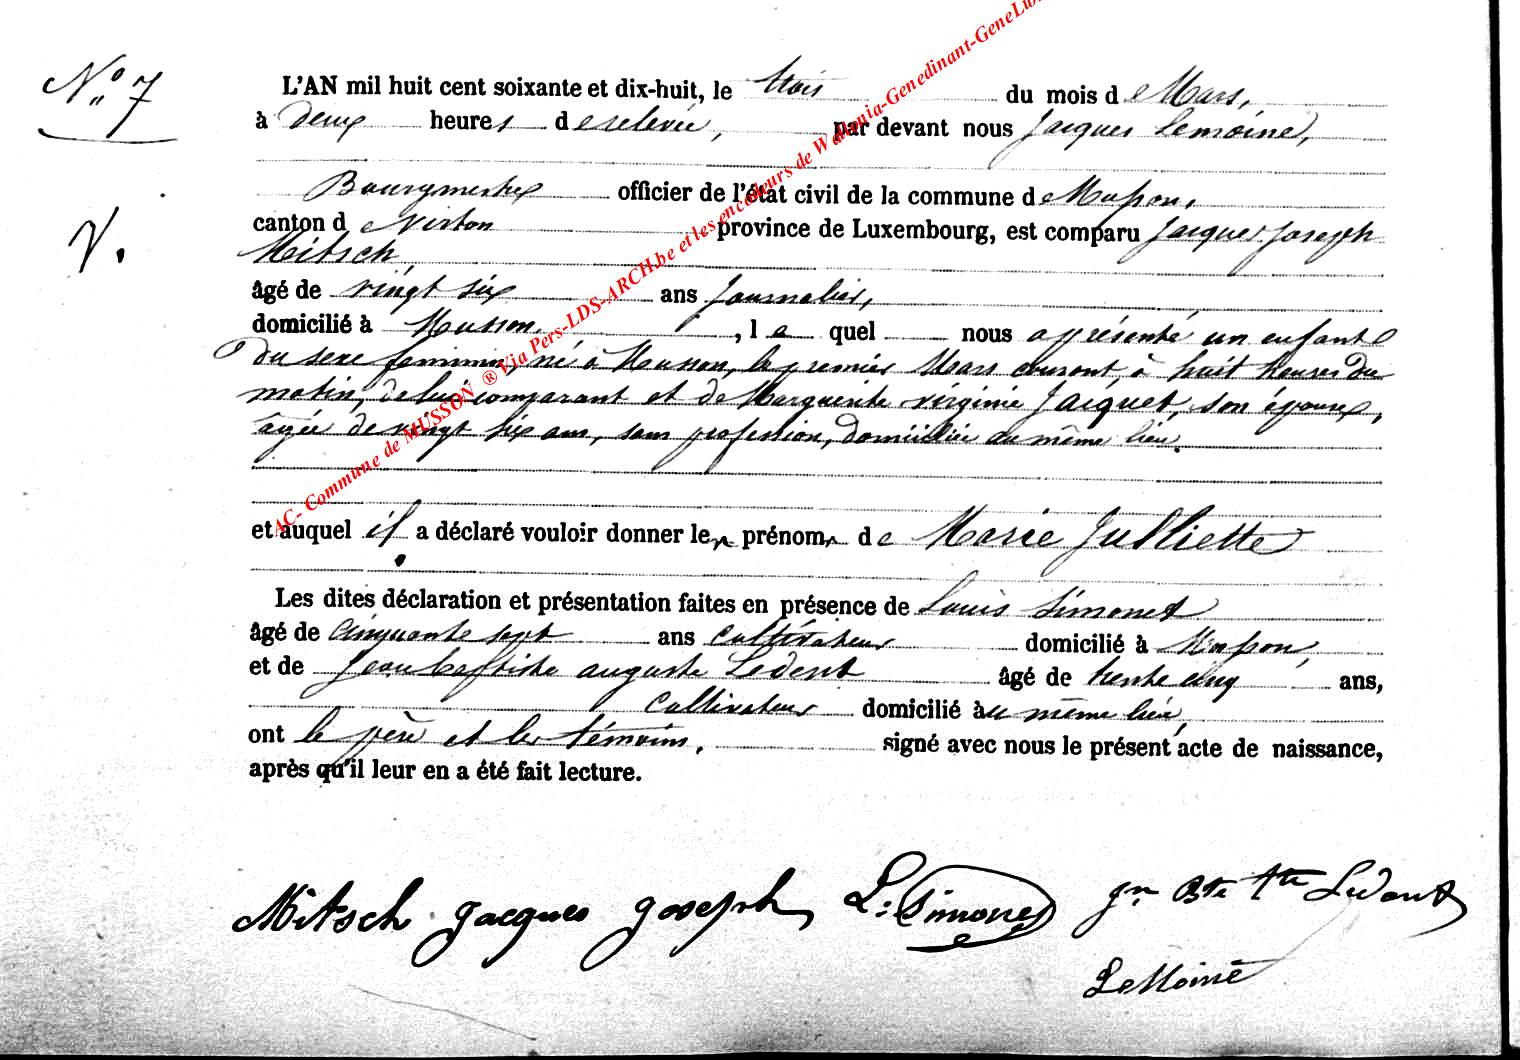 N° 7
L'AN mil huit cent soixante et dix-huit, le trois du mois de Mars,
à deux heures de relevée, par devant nous Jacques Lemoine,
Bourgmestre officier de l'état civil de la commune de Musson,
canton de Virton province de Luxembourg, est comparu Jacques Joseph
Mitsch
V.
âgé de vingt six ans Journalier,
domicilié à Musson, , le quel nous a présenté un enfant
du sexe féminin, né à Musson, le premier Mars courant, à huit heures du
matin, de lui comparant et de Marguerite Virginie Jacquet, son épouse,
âgée de vingt six ans, sans profession, domiciliée au même lieu.
et auquel il a déclaré vouloir donner les prénoms de Marie Julliette
Les dites déclaration et présentation faites en présence de Louis Simonet
âgé de cinquante sept ans cultivateur domicilié à Musson,
et de Jean Baptiste auguste Ledent âgé de trente cinq ans,
cultivateur domicilié au même lieu,
ont le père et les témoins, signé avec nous le présent acte de naissance,
après qu'il leur en a été fait lecture.
Mitsch jacques joseph L: Simonet jn Bte Ledent
LeMoine
AC- Commune de MUSSON ® Via Pers-LDS-ARCH.be et les encodeurs de Wallonia-Genedinant-GeneLib